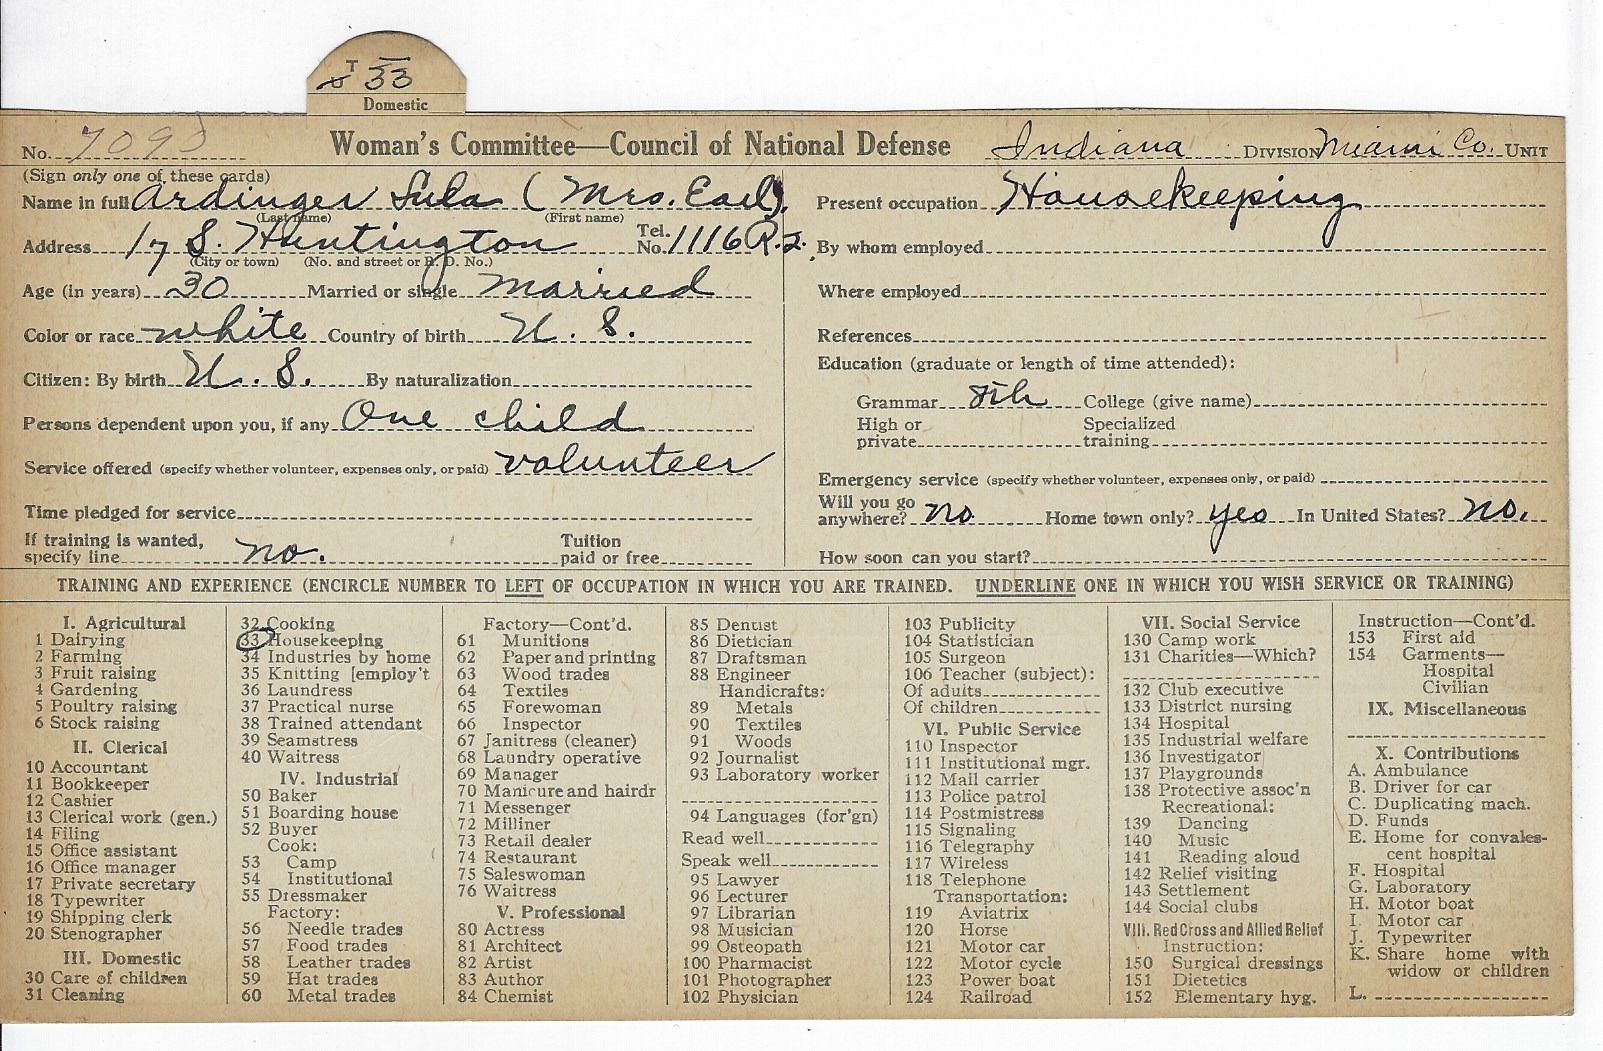 T 33
Domestic
No. 7093 Woman's Committee—Council of National Defense Indiana DIVISION Miami Co. UNIT
(Sign only one of these cards)
Name in full Ardinger Lula (Mrs. Earl).
(Last name) (First name)
Address 17 S. Huntington Tel. No. 1116 R.2.
(City or town) (No. and street or R. D. No.)
Age (in years) 30 Married or single married
Color or race white Country of birth U. S.
Citizen: By birth U. S. By naturalization
Persons dependent upon you, if any One child
Service offered (specify whether volunteer, expenses only, or paid) volunteer
Time pledged for service
If training is wanted, specify line no. Tuition paid or free
Present occupation Housekeeping
By whom employed
Where employed
References
Education (graduate or length of time attended):
Grammar 8th College (give name)
High or private Specialized training
Emergency service (specify whether volunteer, expenses only, or paid)
Will you go anywhere? no Home town only? yes In United States? no.
How soon can you start?
TRAINING AND EXPERIENCE (ENCIRCLE NUMBER TO LEFT OF OCCUPATION IN WHICH YOU ARE TRAINED. UNDERLINE ONE IN WHICH YOU WISH SERVICE OR TRAINING)
I. Agricultural
1 Dairying
2 Farming
3 Fruit raising
4 Gardening
5 Poultry raising
6 Stock raising
II. Clerical
10 Accountant
11 Bookkeeper
12 Cashier
13 Clerical work (gen.)
14 Filing
15 Office assistant
16 Office manager
17 Private secretary
18 Typewriter
19 Shipping clerk
20 Stenographer
III. Domestic
30 Care of children
31 Cleaning
32 Cooking
33 Housekeeping
34 Industries by home
35 Knitting [employ't
36 Laundress
37 Practical nurse
38 Trained attendant
39 Seamstress
40 Waitress
IV. Industrial
50 Baker
51 Boarding house
52 Buyer
Cook:
53 Camp
54 Institutional
55 Dressmaker
Factory:
56 Needle trades
57 Food trades
58 Leather trades
59 Hat trades
60 Metal trades
Factory—Cont'd.
61 Munitions
62 Paper and printing
63 Wood trades
64 Textiles
65 Forewoman
66 Inspector
67 Janitress (cleaner)
68 Laundry operative
69 Manager
70 Manicure and hairdr
71 Messenger
72 Milliner
73 Retail dealer
74 Restaurant
75 Saleswoman
76 Waitress
V. Professional
80 Actress
81 Architect
82 Artist
83 Author
84 Chemist
85 Dentist
86 Dietician
87 Draftsman
88 Engineer
Handicrafts:
89 Metals
90 Textiles
91 Woods
92 Journalist
93 Laboratory worker
94 Languages (for'gn)
Read well
Speak well
95 Lawyer
96 Lecturer
97 Librarian
98 Musician
99 Osteopath
100 Pharmacist
101 Photographer
102 Physician
103 Publicity
104 Statistician
105 Surgeon
106 Teacher (subject):
Of adults
Of children
VI. Public Service
110 Inspector
111 Institutional mgr.
112 Mail carrier
113 Police patrol
114 Postmistress
115 Signaling
116 Telegraphy
117 Wireless
118 Telephone
Transportation:
119 Aviatrix
120 Horse
121 Motor car
122 Motor cycle
123 Power boat
124 Railroad
VII. Social Service
130 Camp work
131 Charities—Which?
132 Club executive
133 District nursing
134 Hospital
135 Industrial welfare
136 Investigator
137 Playgrounds
138 Protective assoc'n
Recreational:
139 Dancing
140 Music
141 Reading aloud
142 Relief visiting
143 Settlement
144 Social clubs
VIII. Red Cross and Allied Relief
Instruction:
150 Surgical dressings
151 Dietetics
152 Elementary hyg.
Instruction—Cont'd.
153 First aid
154 Garments—
Hospital
Civilian
IX. Miscellaneous
X. Contributions
A. Ambulance
B. Driver for car
C. Duplicating mach.
D. Funds
E. Home for convales-
cent hospital
F. Hospital
G. Laboratory
H. Motor boat
I. Motor car
J. Typewriter
K. Share home with
widow or children
L.